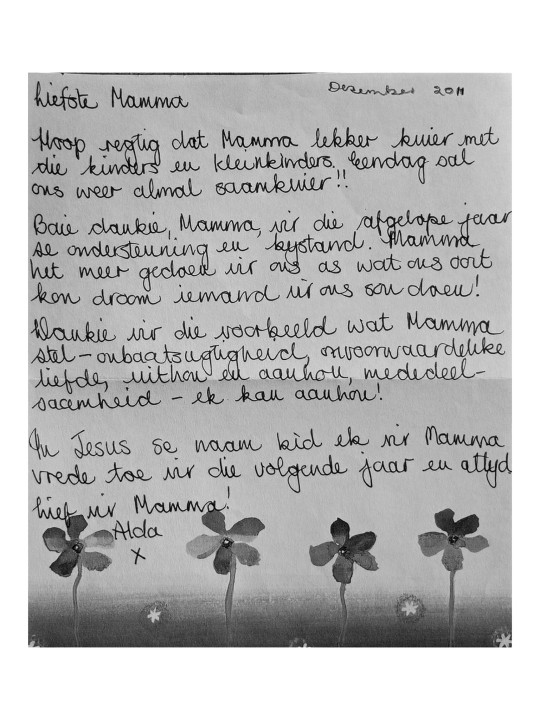 Desember 2011
liefste Mamma
Hoop regtig dat Mamma lekker kuier met
die kinders en kleinkinders. Eendag sal
ons weer almal saamkuier!!
Baie dankie, Mamma, vir die afgelope jaar
se ondersteuning en bystand. Mamma
het meer gedoen vir ons as wat ons ooit
kon droom iemand vir ons sou doen!
Dankie vir die voorbeeld wat Mamma
stel - onbaatsugtigheid, onvoorwaardelike
liefde, uithou en aanhou, mededeel-
saamheid - ek kan aanhou!
In Jesus se naam bid ek vir Mamma
vrede toe vir die volgende jaar en altyd
lief vir Mamma!
Alda
x